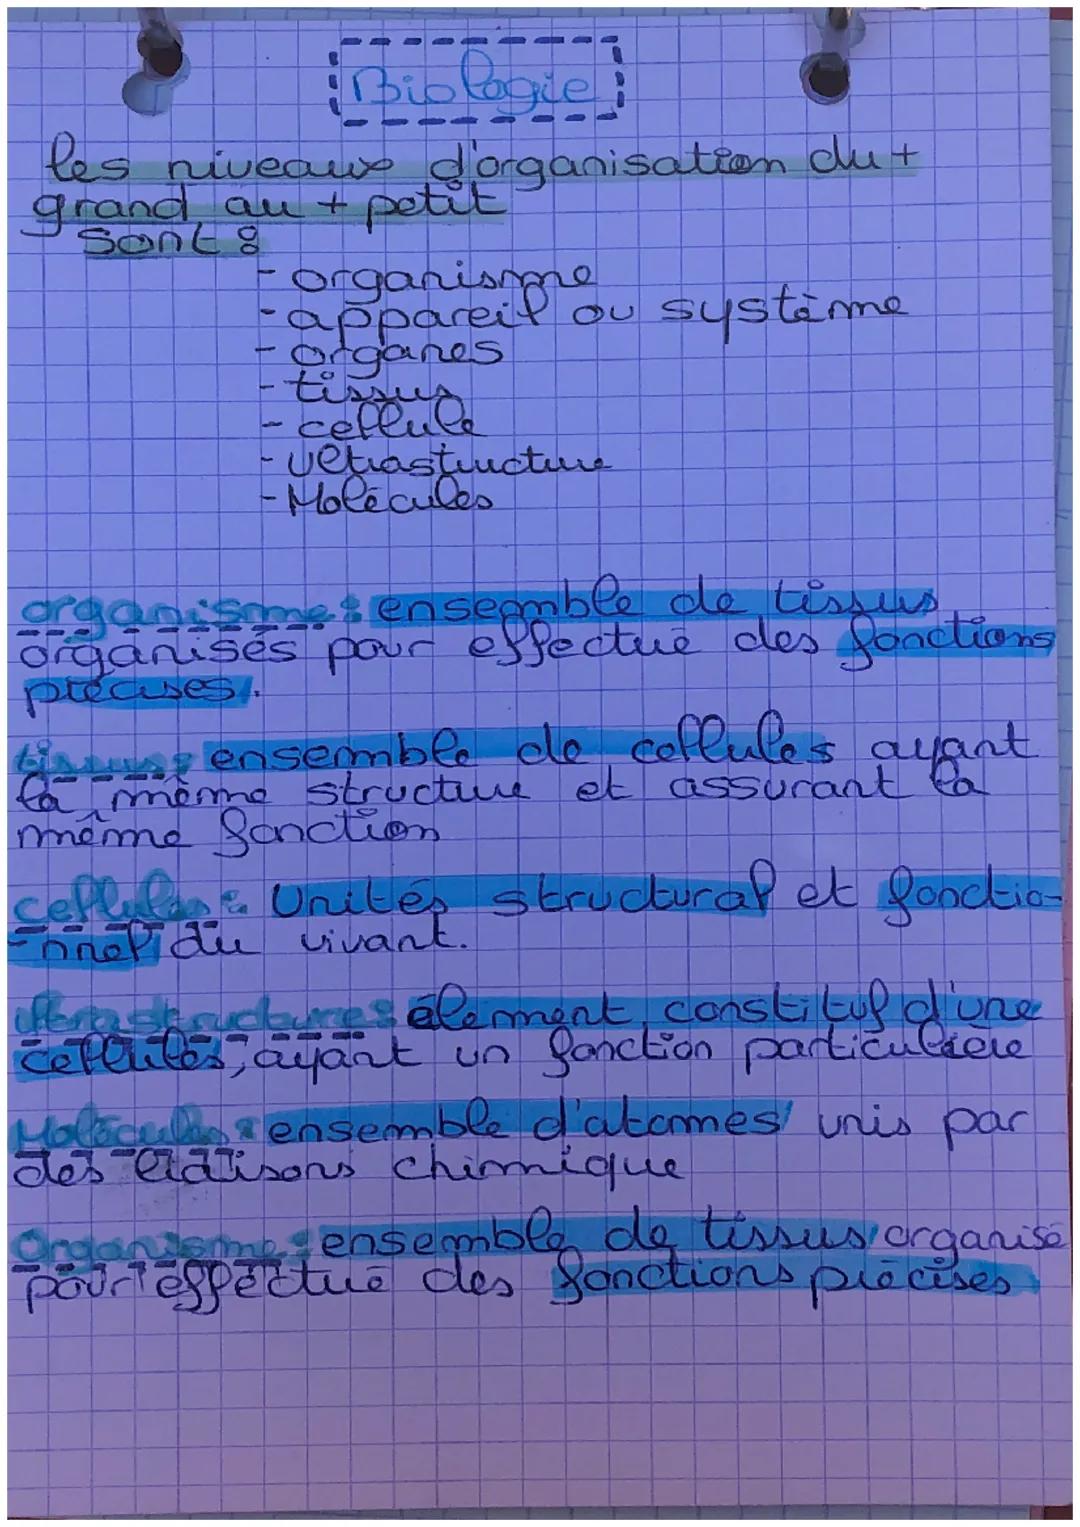 Biologie
les niveaux d'organisation du +
grand au + petit
sont :
- organisme
- appareil ou système
- organes
- tissus
- cellule
- ultrastructure
- Molécules
organisme : ensemble de tissus
organisés pour effectué des fonctions
précises.
tissus : ensemble de cellules ayant
la même structure et assurant la
même fonction
cellules : Unités structural et fonctio-
-nnel du vivant.
ultrastructures : élément constituf d'une
cellules, ayant un fonction particulière
Molécules : ensemble d'atomes unis par
des liaisons chimique
Organisme : ensemble de tissus organisé
pour effectué des fonctions précises